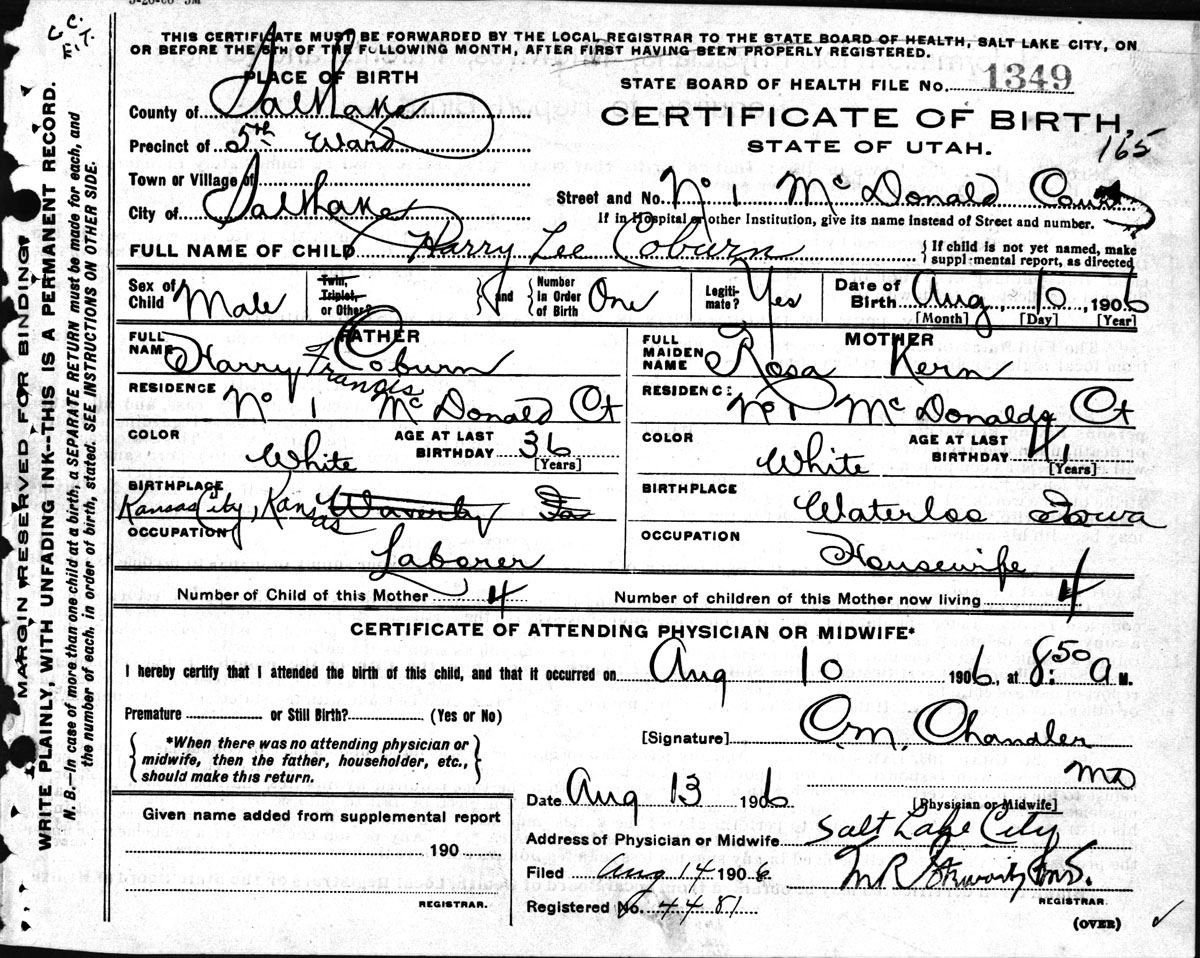 C.C.
F.T.
THIS CERTIFICATE MUST BE FORWARDED BY THE LOCAL REGISTRAR TO THE STATE BOARD OF HEALTH, SALT LAKE CITY, ON
OR BEFORE THE 5TH OF THE FOLLOWING MONTH, AFTER FIRST HAVING BEEN PROPERLY REGISTERED.
PLACE OF BIRTH
STATE BOARD OF HEALTH FILE No. 1349
County of Salt Lake
CERTIFICATE OF BIRTH,
Precinct of 5th Ward
STATE OF UTAH.
165
Town or Village of
Street and No. No 1 McDonald Court
City of Salt Lake
If in Hospital or other Institution, give its name instead of Street and number.
FULL NAME OF CHILD Harry Lee Coburn
{If child is not yet named, make
supplemental report, as directed
Sex of Child Male
Twin, Triplet, or Other?
and
Number In Order of Birth One
Legitimate? Yes
Date of Birth Aug 10, 1906
[Month] [Day] [Year]
FATHER
FULL NAME Harry Francis Coburn
RESIDENCE No 1 McDonald Ct
COLOR White AGE AT LAST BIRTHDAY 36 [Years]
BIRTHPLACE Kansas City, Kansas Waverly
OCCUPATION Laborer
MOTHER
FULL MAIDEN NAME Rosa Kern
RESIDENCE No 1 McDonald Ct
COLOR White AGE AT LAST BIRTHDAY 41 [Years]
BIRTHPLACE Waterloo Iowa
OCCUPATION Housewife
Number of Child of this Mother 4 Number of children of this Mother now living 4
CERTIFICATE OF ATTENDING PHYSICIAN OR MIDWIFE*
I hereby certify that I attended the birth of this child, and that it occurred on Aug 10 1906, at 8:50 a M.
Premature or Still Birth? (Yes or No)
[Signature] O.M. Chandler
MD
[Physician or Midwife]
{*When there was no attending physician or
midwife, then the father, householder, etc.,
should make this return.}
Date Aug 13 1906
Given name added from supplemental report
190
REGISTRAR.
Address of Physician or Midwife Salt Lake City
Filed Aug 14 1906
REGISTRAR.
Registered No. 4481
(OVER)
MARGIN RESERVED FOR BINDING
WRITE PLAINLY, WITH UNFADING INK--THIS IS A PERMANENT RECORD.
N. B.—In case of more than one child at a birth, a SEPARATE RETURN must be made for each, and
the number of each, in order of birth, stated. SEE INSTRUCTIONS ON OTHER SIDE.